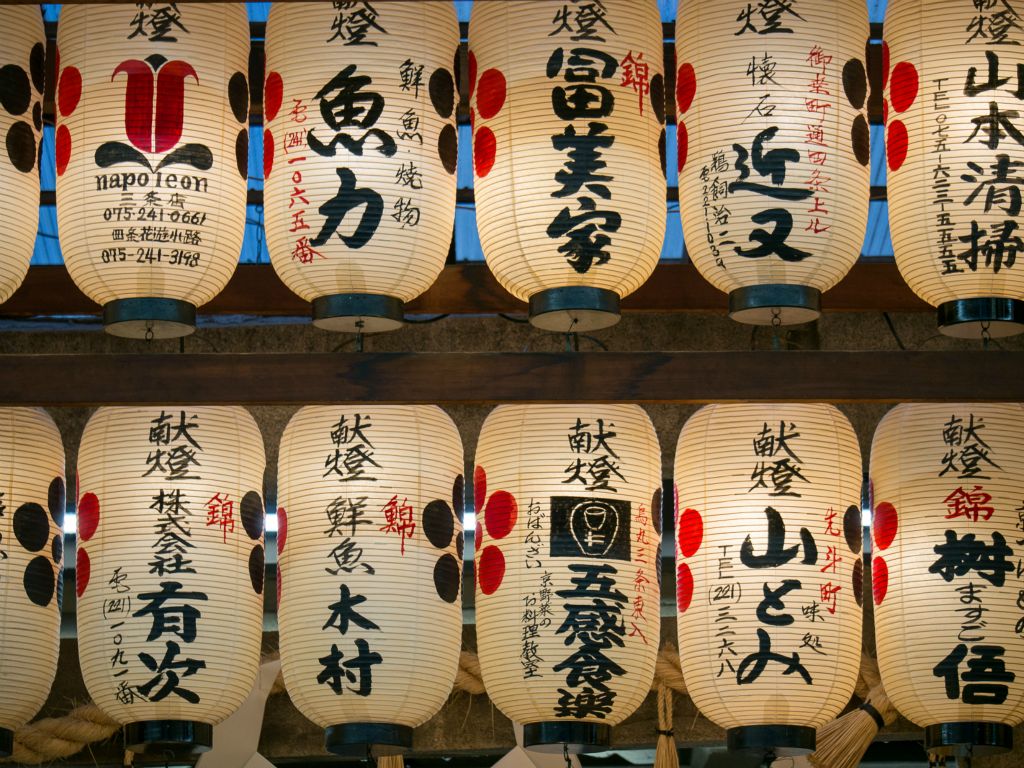 献燈
napoleon
三条店
075-241-0661
四条花遊小路
075-241-3198
献燈
鮮魚焼物
魚力
電(241)一〇六五番
献燈
錦
冨美家
献燈
御幸町通四条上ル
懐石
近又
鵜飼治二
電221-1039
献燈
山本清掃
TEL〇七五-六三一-五五五五
献燈
錦
株式会社
有次
電(221)一〇九一番
献燈
錦
鮮魚
木村
献燈
烏丸三条東入
おばんざい
京野菜の
お料理教室
五感食楽
献燈
先斗町
味処
山とみ
TEL(221)三二六八
献燈
錦
桝悟
ますご